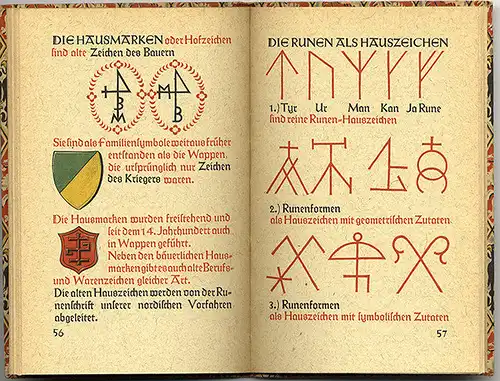 DIE HAUSMARKEN oder Hofzeichen
sind alte Zeichen des Bauern
B
M
M
B
Sie sind als Familiensymbole weitaus früher
entstanden als die Wappen,
die ursprünglich nur Zeichen
des Kriegers waren.
Die Hausmarken wurden freistehend und
seit dem 14. Jahrhundert auch
in Wappen geführt.
Neben den bäuerlichen Haus-
marken gibt es auch alte Berufs-
und Warenzeichen gleicher Art.
Die alten Hauszeichen werden von der Ru-
nenschrift unserer nordischen Vorfahren
abgeleitet.
56
DIE RUNEN ALS HAUSZEICHEN
1.) Tyr Ur Man Kan Ja Rune
sind reine Runen-Hauszeichen
2.) Runenformen
als Hauszeichen mit geometrischen Zutaten.
3.) Runenformen
als Hauszeichen mit symbolischen Zutaten
57